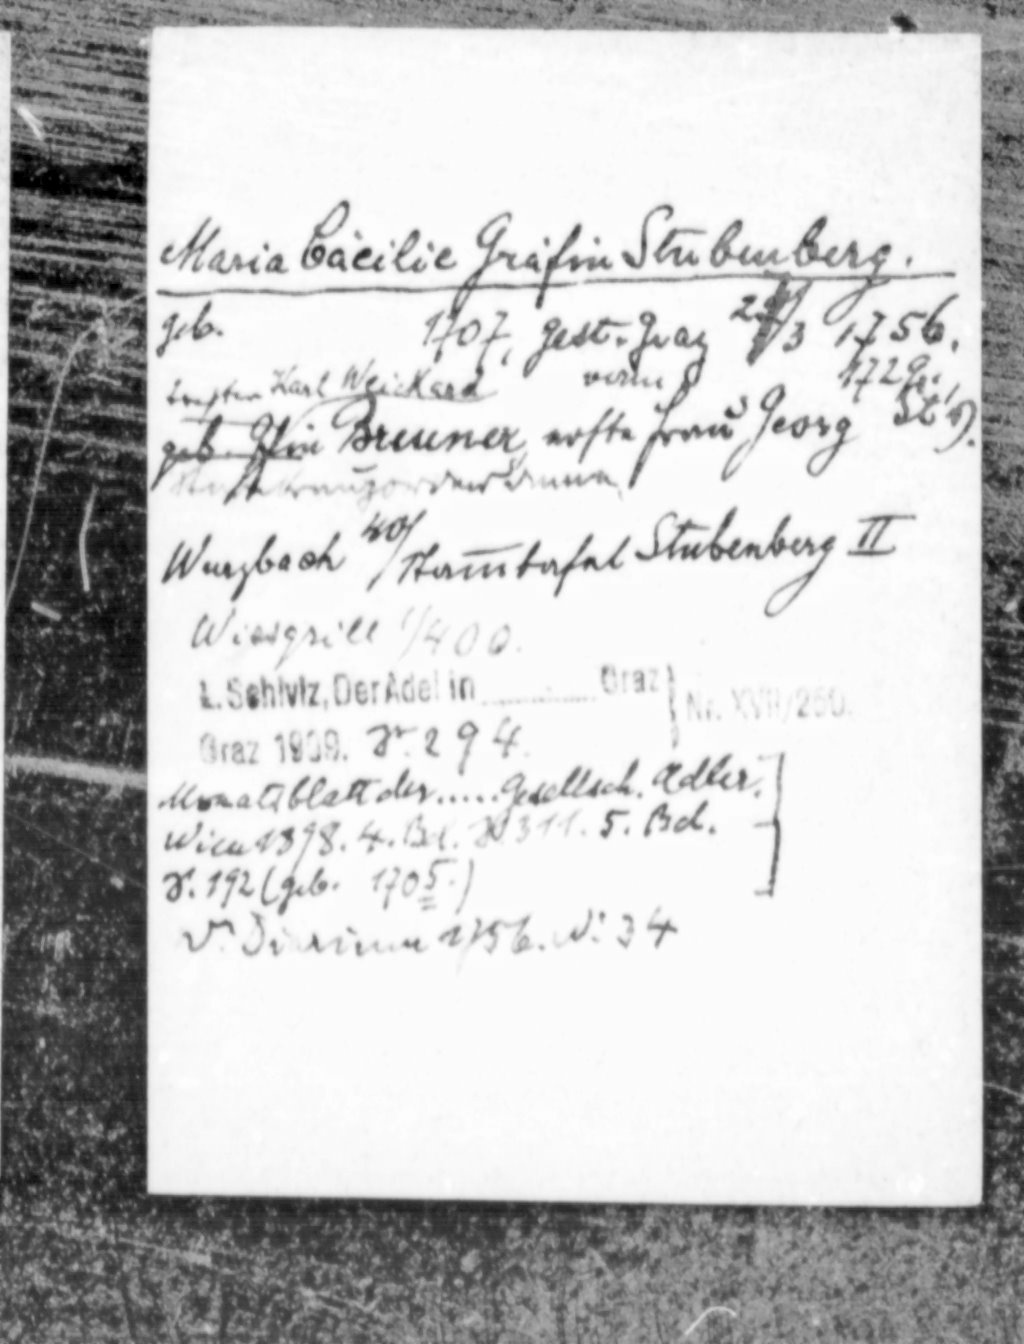 Maria Cäcilie Gräfin Stubenberg.
geb. 1707, gest. Graz 29/3 1756.
Karl Weickard verm. 1729.
geb. Gfin Breuner, erste Frau Georg St.
Sternkreuzordensdame
Wurzbach 40/Stammtafel Stubenberg II
Wissgrill 1/400.
L. Schiviz, Der Adel in ........ Graz Nr. XVII/250.
Graz 1909. S. 294.
Monatsblatt der ..... Gesellsch. Adler.
Wien 1898. 4. Bd. S 311. 5. Bd.
S. 192 (geb. 1705.)
Diarium 1756. N: 34